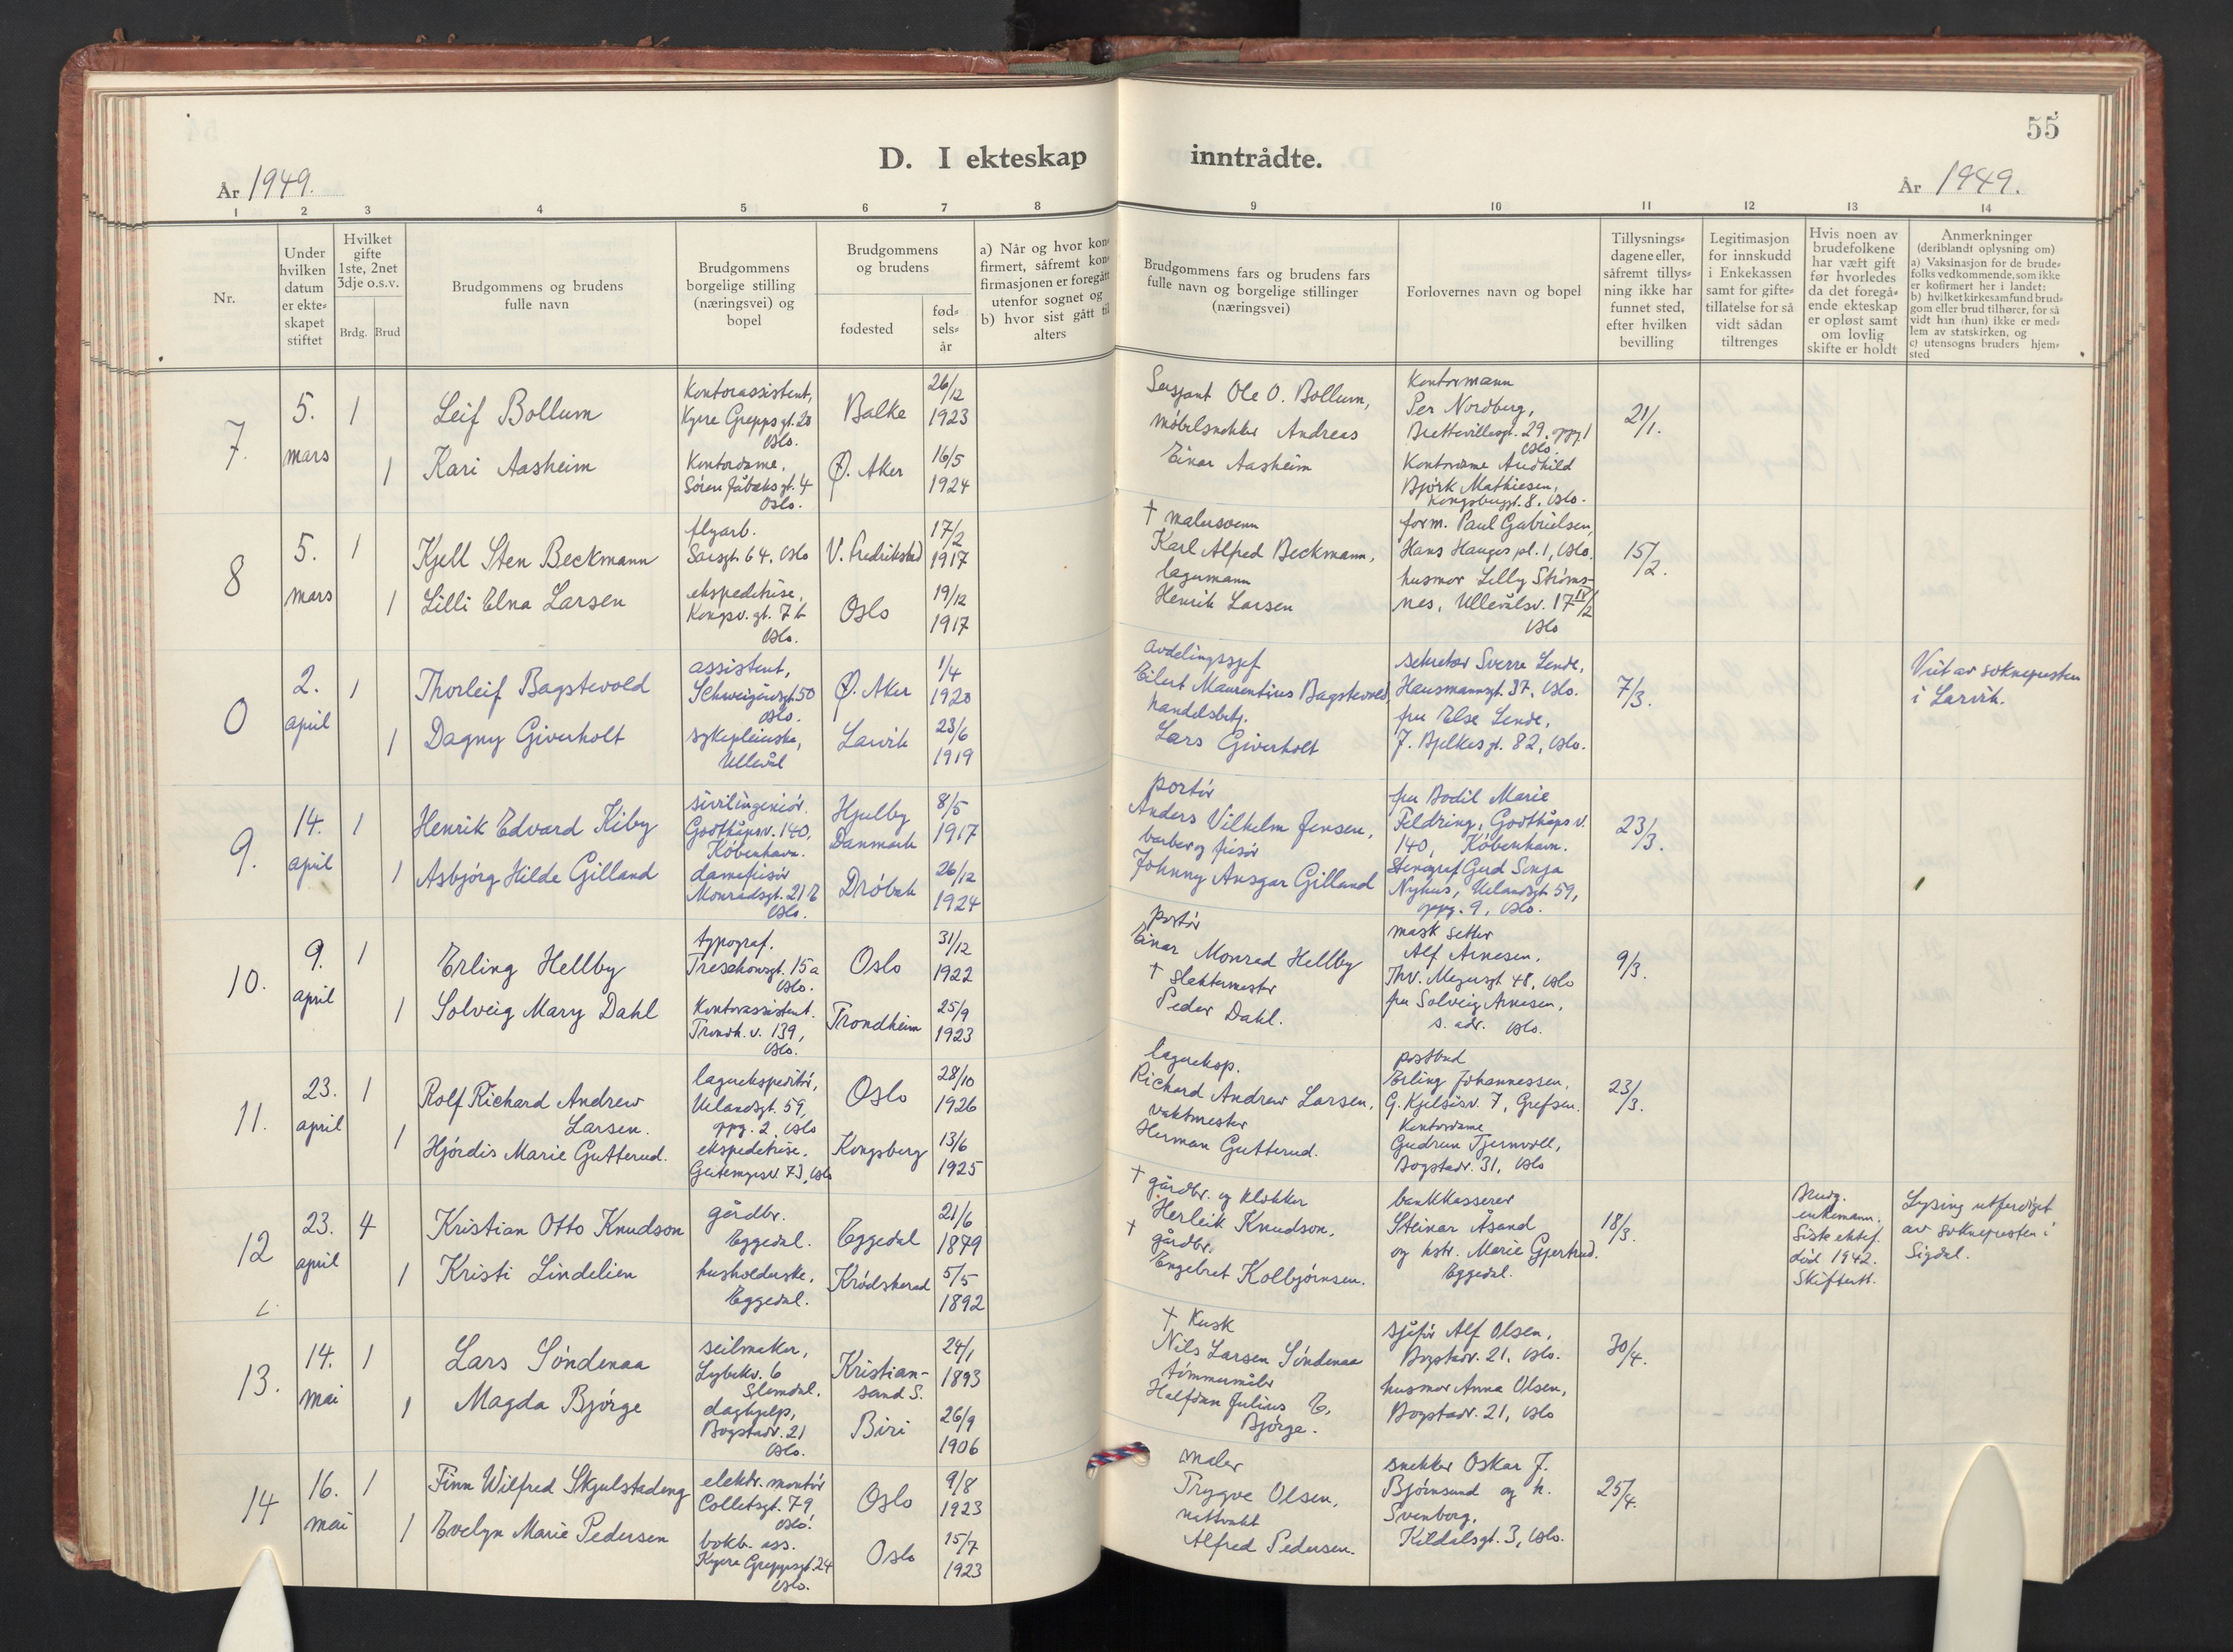 55
D. I ekteskap inntrådte.
År 1949.
År 1949.
1 2 3 4 5 6 7 8 9 10 11 12 13 14
Nr.
Under
hvilken
datum
er ekte-
skapet
stiftet
Hvilket
gifte
1ste, 2net
3dje o.s.v.
Brdg. Brud
Brudgommens og brudens
fulle navn
Brudgommens
borgelige stilling
(næringsvei) og
bopel
Brudgommens
og brudens
fødested
fød-
sels-
år
a) Når og hvor kon-
firmert, såfremt kon-
firmasjonen er foregått
utenfor sognet og
b) hvor sist gått til
alters
Brudgommens fars og brudens fars
fulle navn og borgelige stillinger
(næringsvei)
Forlovernes navn og bopel
Tillysnings-
dagene eller,
såfremt tillys-
ning ikke har
funnet sted,
efter hvilken
bevilling
Legitimasjon
for innskudd
i Enkekassen
samt for gifte-
tillatelse for så
vidt sådan
tiltrenges
Hvis noen av
brudefolkene
har vært gift
før hvorledes
da det foregå-
ende ekteskap
er opløst samt
om lovlig
skifte er holdt
Anmerkninger
(deriblandt oplysning om)
a) Vaksinasjon for de brude-
folks vedkommende, som ikke
er kofirmert her i landet:
b) hvilket kirkesamfund brud-
gom eller brud tilhører, for så
vidt han (hun) ikke er med-
lem av statskirken, og
c) utensogns bruders hjem-
sted
7.
5.
mars
1
1
Leif Bollum
Kari Aasheim
Kontorassistent,
Kyrre Greppsgt. 20
Oslo.
Kontordame,
Sören Jåbæksgt. 4
Oslo.
Balke
Ø. Aker
26/12
1923
16/5
1924
Sersjant Ole O. Bollum,
møbelsnekker Andreas
Einar Aasheim
Kontormann
Per Nordberg,
29, oppg. 1
Oslo.
Kontordame Audhild
Björk Mathiesen,
Kongsbergt. 8, Oslo.
21/1.
8
5.
mars
1
1
Kjell Sten Beckmann
Lilli Elna Larsen
flyarb.
Sarsgt. 64, Oslo
ekspeditrise,
Kongsv. gt. 7 b
Oslo.
V. Fredrikstad
Oslo
17/2
1917
19/12
1917
† malersvenn
Karl Alfred Beckmann,
lagermann
Henrik Larsen
form. Paul Gabrielsen,
Hans Hauges pl. 1, Oslo.
husmor Lilly Ströms-
nes, Ullevålsv. 17 IV/2
Oslo
15/2.
0
2.
april
1
1
Thorleif Bagstevold
Dagny Giverholt
assistent,
Schweigårdsgt. 50
Oslo.
sykepleierske,
Ullevål
Ø. Aker
Larvik
1/4
1920
23/6
1919
avdelingssjef
Eilert Maurentius Bagstevold,
handelsbetj.
Lars Giverholt
sekretær Sverre Lende,
Hausmannsgt. 37, Oslo.
fru Else Lende,
J. Bjelkesgt. 82, Oslo.
7/3.
Viet av soknepresten
i Larvik.
9.
14.
april
1
1
Henrik Edvard Kiby
Asbjørg Hilde Gilland
sivilingeniör.
Godthåpsv. 140,
København.
damefrisör
Monradsgt. 21 B
Oslo.
Hjulby
Danmark
Dröbak
8/5
1917
26/12
1924
portör
Anders Vilhelm Jensen,
barber og frisör
Johnny Ansgar Gilland
fru Bodil Marie
Feldring, Godthåps v.
140, København.
Stenograf Gerd Senja
Nyhus, Uelandsgt. 59,
oppg. 9, Oslo.
23/3.
10.
9.
april
1
1
Erling Hellby
Solveig Mary Dahl
typograf.
Treschowsgt. 15a
Oslo.
Kontorassistent.
Trondh. v. 139,
Oslo.
Oslo
Trondheim
31/12
1922
25/9
1923
portör
Einar Monrad Hellby
† slaktermester
Peder Dahl.
mask setter
Alf Arnesen,
Thv. Meyersgt 48, Oslo
fru Solveig Arnesen,
s. adr. Oslo.
9/3.
11.
23.
april
1
1
Rolf Richard Andrew
Larsen.
Hjördis Marie Gutterud.
lagerekspeditör,
Uelandsgt. 59,
opg. 2, Oslo
ekspeditrise.
Geitemyrsv. 73, Oslo
Oslo
Kongsberg
28/10
1926
13/6
1925
lagereksp.
Richard Andrew Larsen,
vaktmester
Herman Gutterud.
postbud
Erling Johannessen,
G. Kjelsåsv. 7, Grefsen.
Kontordame
Gudrun Tjernvoll,
Bogstadv. 31, Oslo
23/3.
12
23.
april
4
1
Kristian Otto Knudson
Kristi Lindelien
gårdbr.
Eggedal.
husholderske,
Eggedal.
Eggedal
Krödsherad
21/6
1879
5/5
1892
† gårdbr. og klokker
Herleik Knudson.
† gårdbr.
Engebret Kolbjörnsen.
bankkasserer
Steinar Åsand
og hstr. Marie Gjertrud.
Eggedal.
18/3.
Brudg.
enkemann.
Siste ektef.
död 1942.
Skifteatt.
Lysing utferdiget
av soknepresten i
Sigdal.
13.
14.
mai
1
1
Lars Söndenaa
Magda Bjørge
seilmaker,
Lybekv. 6
Slemdal.
daghjelp,
Bogstadv. 21
Oslo.
Kristian-
sand S.
Biri
24/1
1893
26/9
1906
† Kusk
Nils Larsen Söndenaa
tömmermåler
Halfdan Julius E.
Bjørge.
sjåför Alf Olsen,
Bogstadv. 21, Oslo.
husmor Anna Olsen,
Bogstadv. 21, Oslo
30/4.
14
16.
mai
1
1
Finn Wilfred Skjulstadeng
Evelyn Marie Pedersen
elektr. montör
Colletsgt. 79,
Oslo.
bokb. ass.
Kyrre Greppsgt. 24
Oslo.
Oslo
Oslo
9/8
1923
15/7
1923
maler
Trygve Olsen,
nattvakt
Alfred Pedersen.
snekker Oskar J.
Björnsund og h.
Svenborg,
Kildalsgt. 3, Oslo.
25/4.